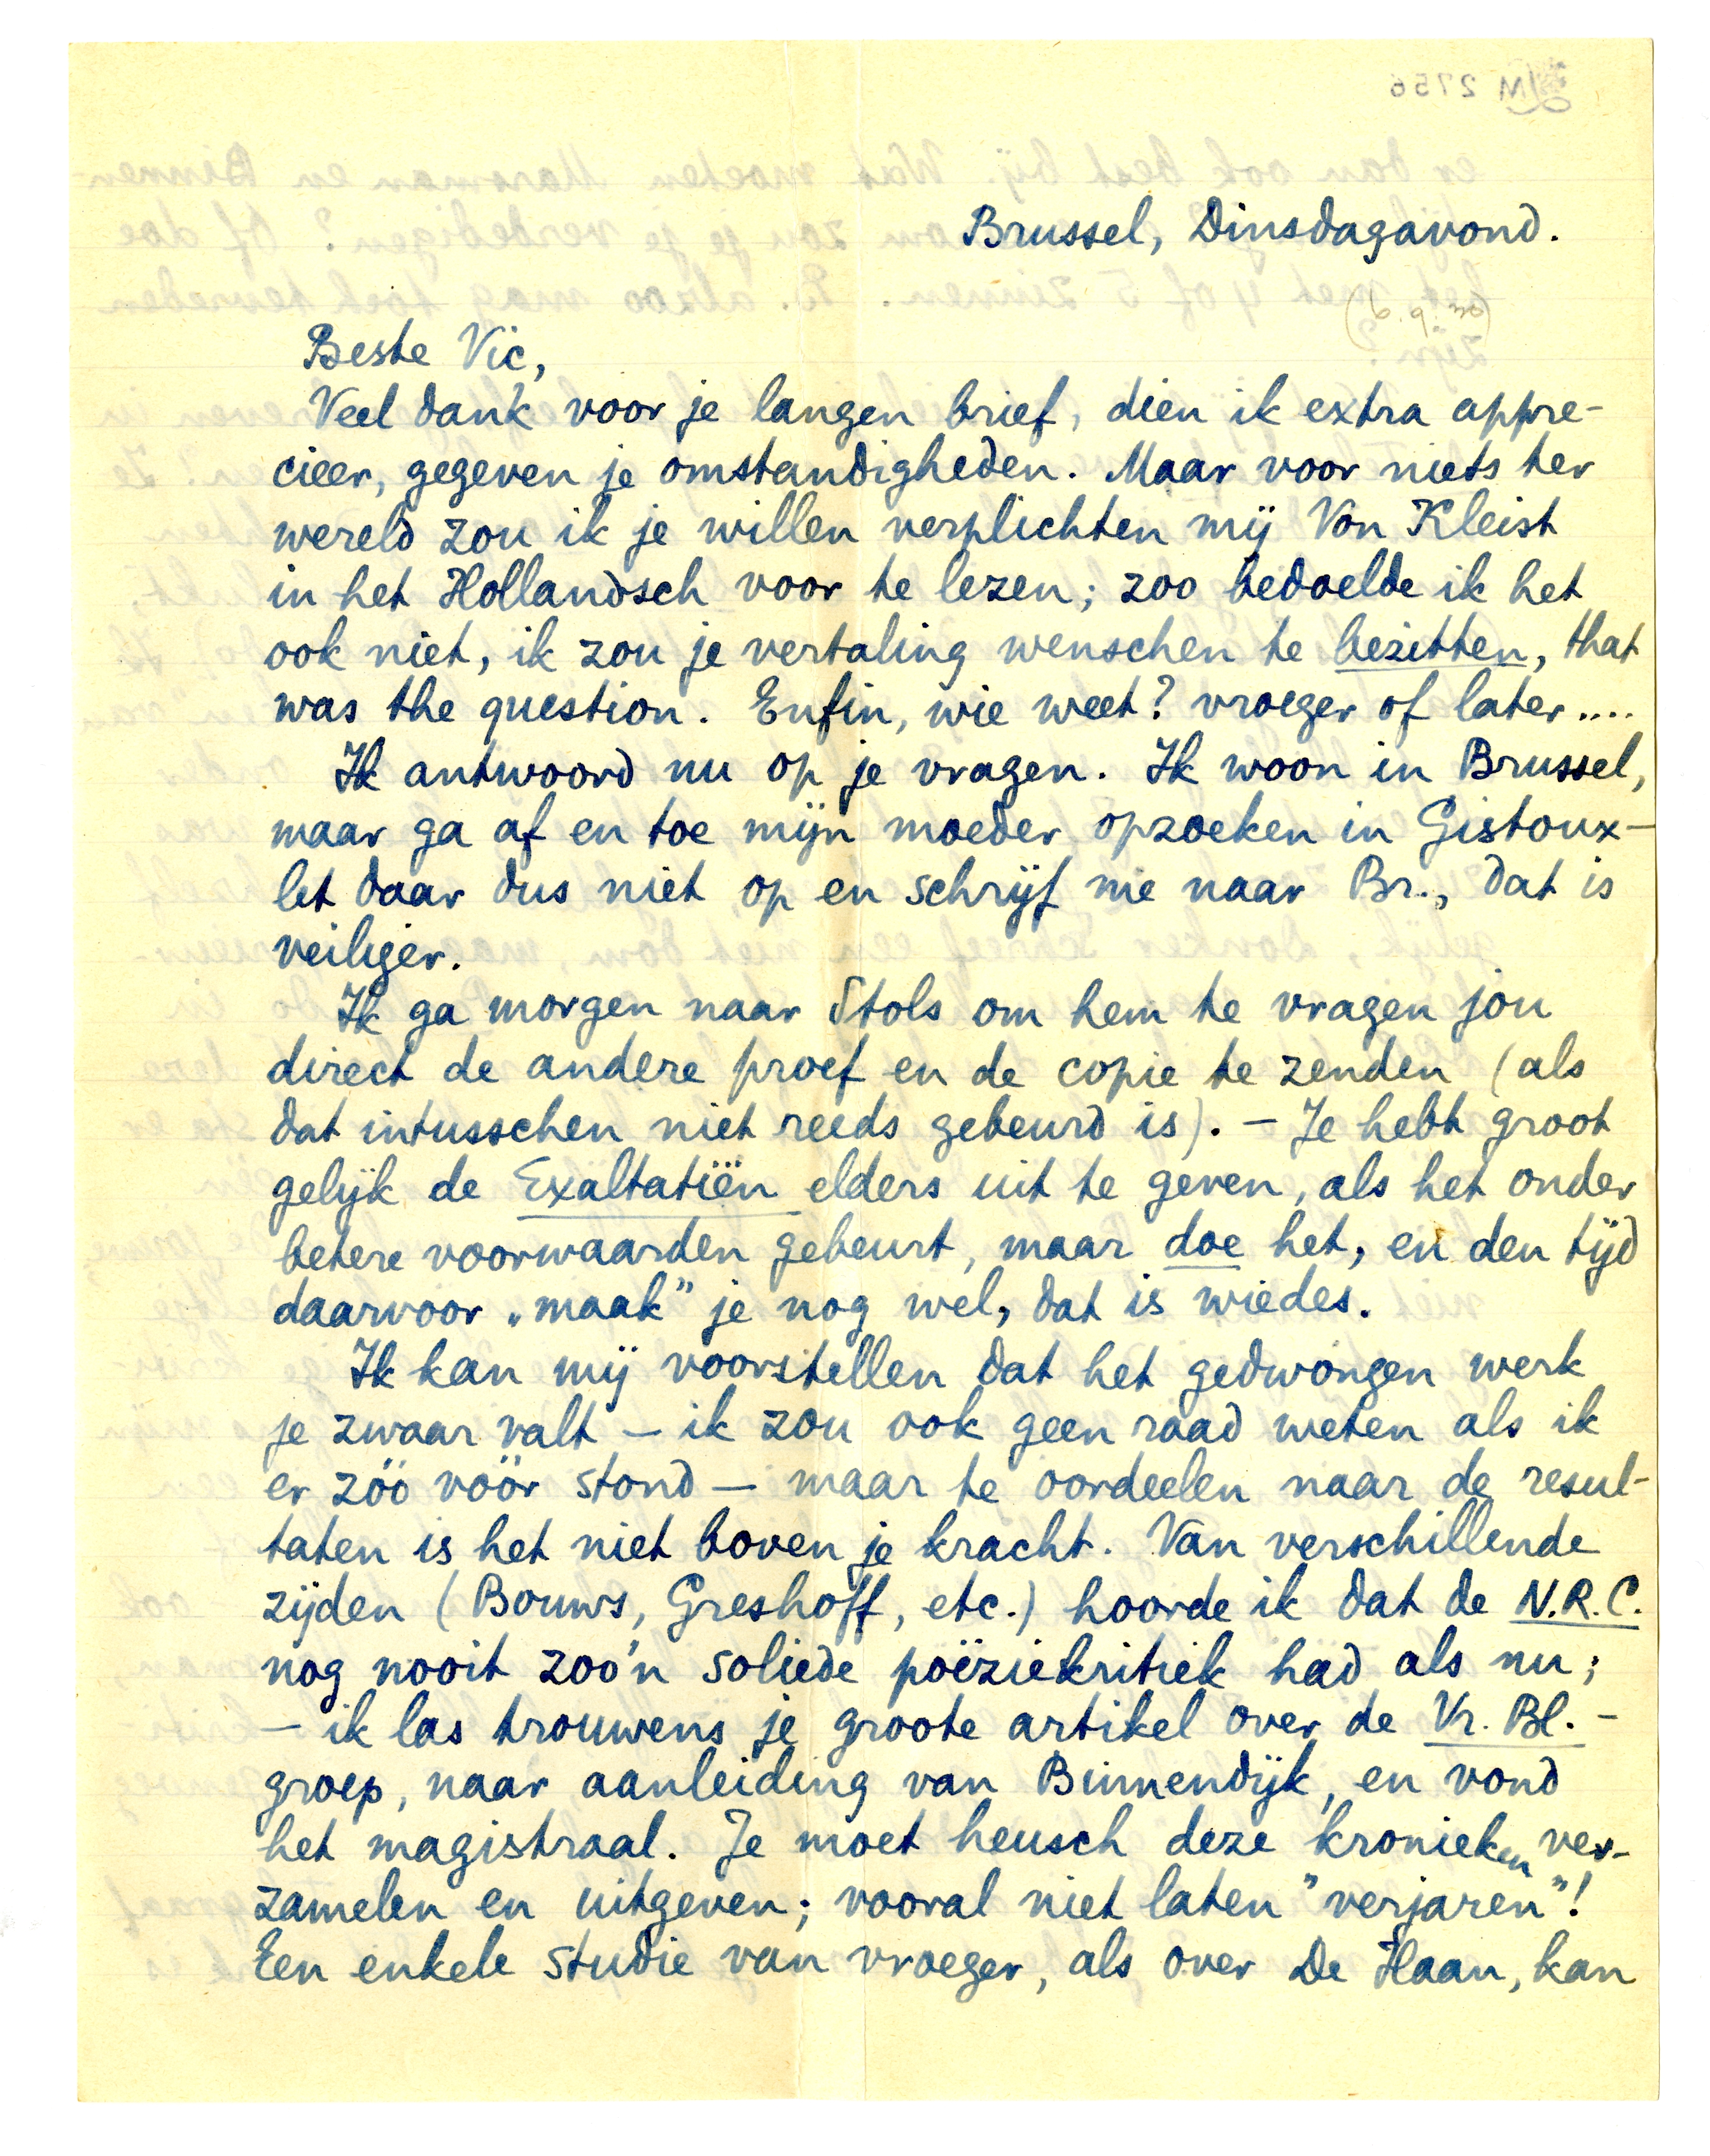 Brussel, Dinsdagavond.
Beste Vic,
Veel dank voor je langen brief, dien ik extra appre-
cieer, gegeven je omstandigheden. Maar voor niets ter
wereld zou ik je willen verplichten mij Von Kleist
in het Hollandsch voor te lezen; zoo bedoelde ik het
ook niet, ik zou je vertaling wenschen te bezitten, that
was the question. Enfin, wie weet? vroeger of later....
Ik antwoord nu op je vragen. Ik woon in Brussel,
maar ga af en toe mijn moeder opzoeken in Gistoux —
let daar dus niet op en schrijf me naar Br., dat is
veiliger.
Ik ga morgen naar Stols om hem te vragen jou
direct de andere proef en de copie te zenden (als
dat intusschen niet reeds gebeurd is). — Je hebt groot
gelijk de Exaltatiën elders uit te geven, als het onder
betere voorwaarden gebeurt, maar doe het, en den tijd
daarvoor „maak" je nog wel, dat is wiedes.
Ik kan mij voorstellen dat het gedwongen werk
je zwaar valt — ik zou ook geen raad weten als ik
er zóó vóór stond — maar te oordeelen naar de resul-
taten is het niet boven je kracht. Van verschillende
zijden (Bouws, Greshoff, etc.) hoorde ik dat de N.R.C.
nog nooit zoo'n soliede poëziekritiek had als nu;
— ik las trouwens je groote artikel over de Vr. Bl. -
groep, naar aanleiding van Binnendijk, en vond
het magistraal. Je moet heusch deze kronieken ver-
zamelen en uitgeven; vooral niet laten "verjaren"!
Een enkele studie van vroeger, als over De Haan, kan